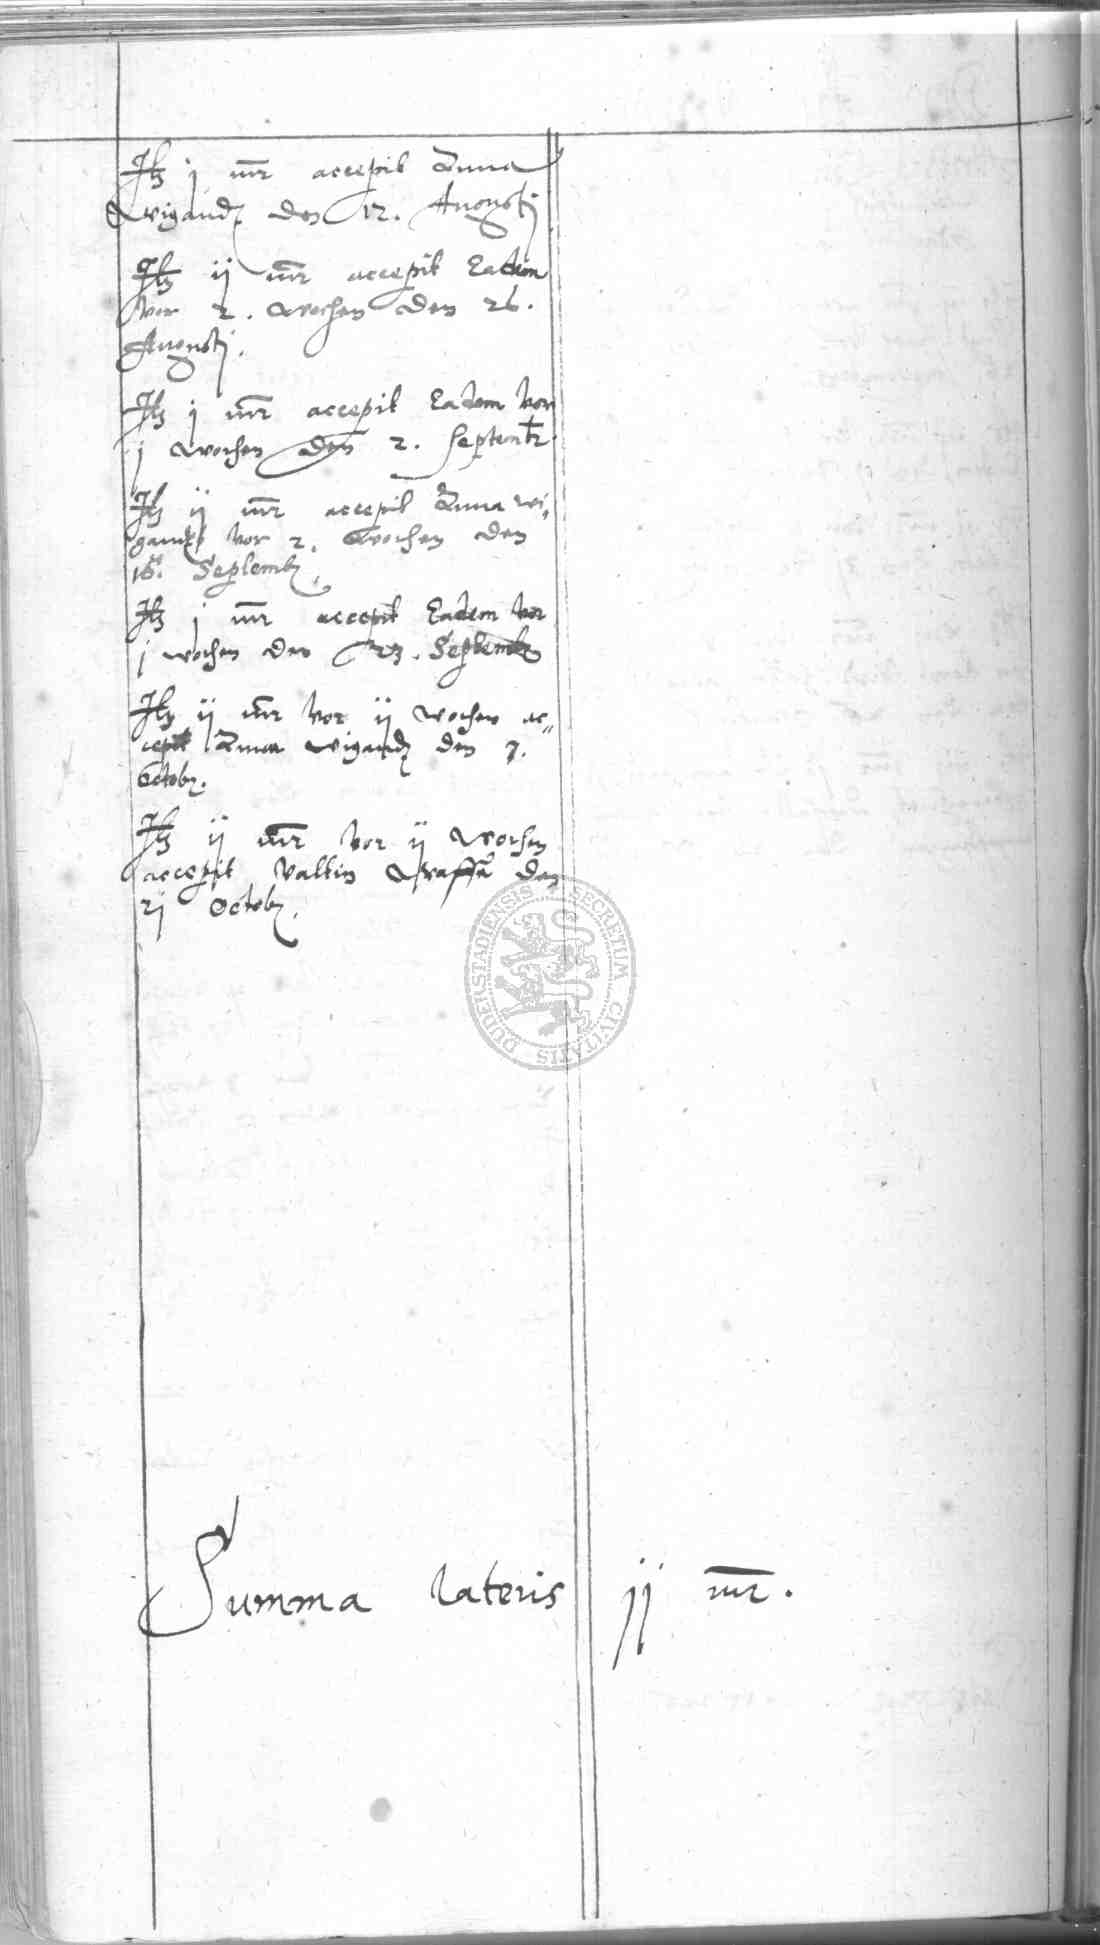 Itz j mr accepit Anna
Wigandz den 12. Augusti
Itz ij mr accepit Eadem
vor 2. Wochen den 26.
Augusti.
Itz j mr accepit Eadem vor
j Wochen den 2. Septembr
Itz ij mr accepit Anna Wi„
gandz vor 2. Wochen den
16. Septemb.
Itz j mr accepit Eadem vor
j wochen den 23. Septemb
Itz ij mr vor ij wochen ac„
cepit Anna Wigandz den 7.
Octob.
Itz ij mr vor ij Wochen
accepit Valtin den
21 Octob.
Summa lateris ij mr.
SECRETUM CIVITATIS DUDERSTADIENSIS